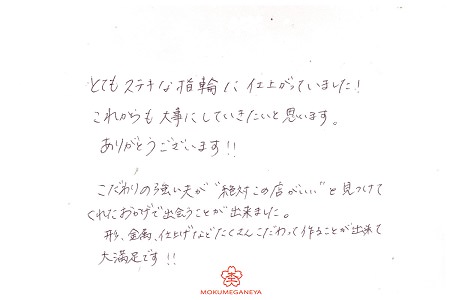 とてもステキな指輪に仕上がっていました!
これからも大事にしていきたいと思います。
ありがとうございます!!
こだわりの強い夫が"絶対この店がいい"と見つけて
くれたおかげで出会うことが出来ました。
形、金属、仕上げなどたくさんこだわって作ることが出来て
大満足です!!
MOKUMEGANEYA